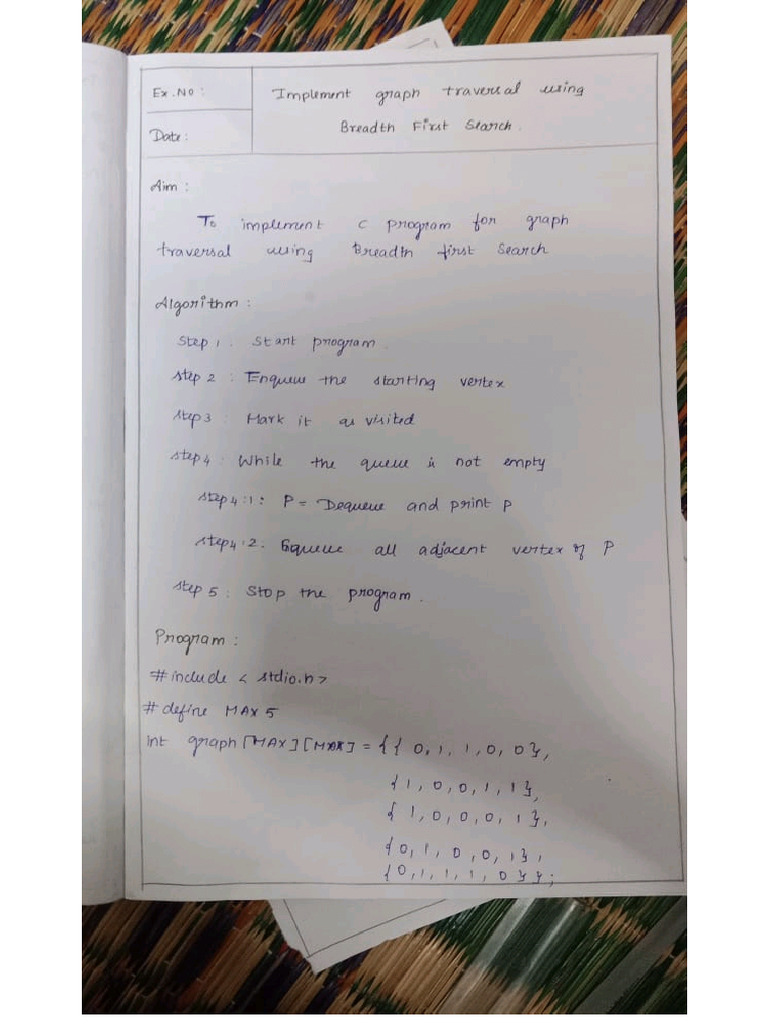 Ex.No :
Implement graph traversal using
Breadth First Search.
Date :
Aim :
To implement C program for graph
traversal using Breadth first Search
Algorithm :
Step 1 : Start program.
Step 2 : Enqueue the starting vertex
Step 3 : Mark it as visited
Step 4 : While the queue is not empty
Step 4:1 : P = Dequeue and print P
Step 4:2 : Equeue all adjacent vertex of P
Step 5 : Stop the program.
Program :
#include < stdio.h>
# define MAX 5
int graph [MAX][MAX] = {{ 0, 1, 1, 0, 0},
{1, 0, 0, 1, 1},
{ 1, 0, 0, 0, 1},
{0, 1, 0, 0, 1},
{0, 1, 1, 1, 0}};